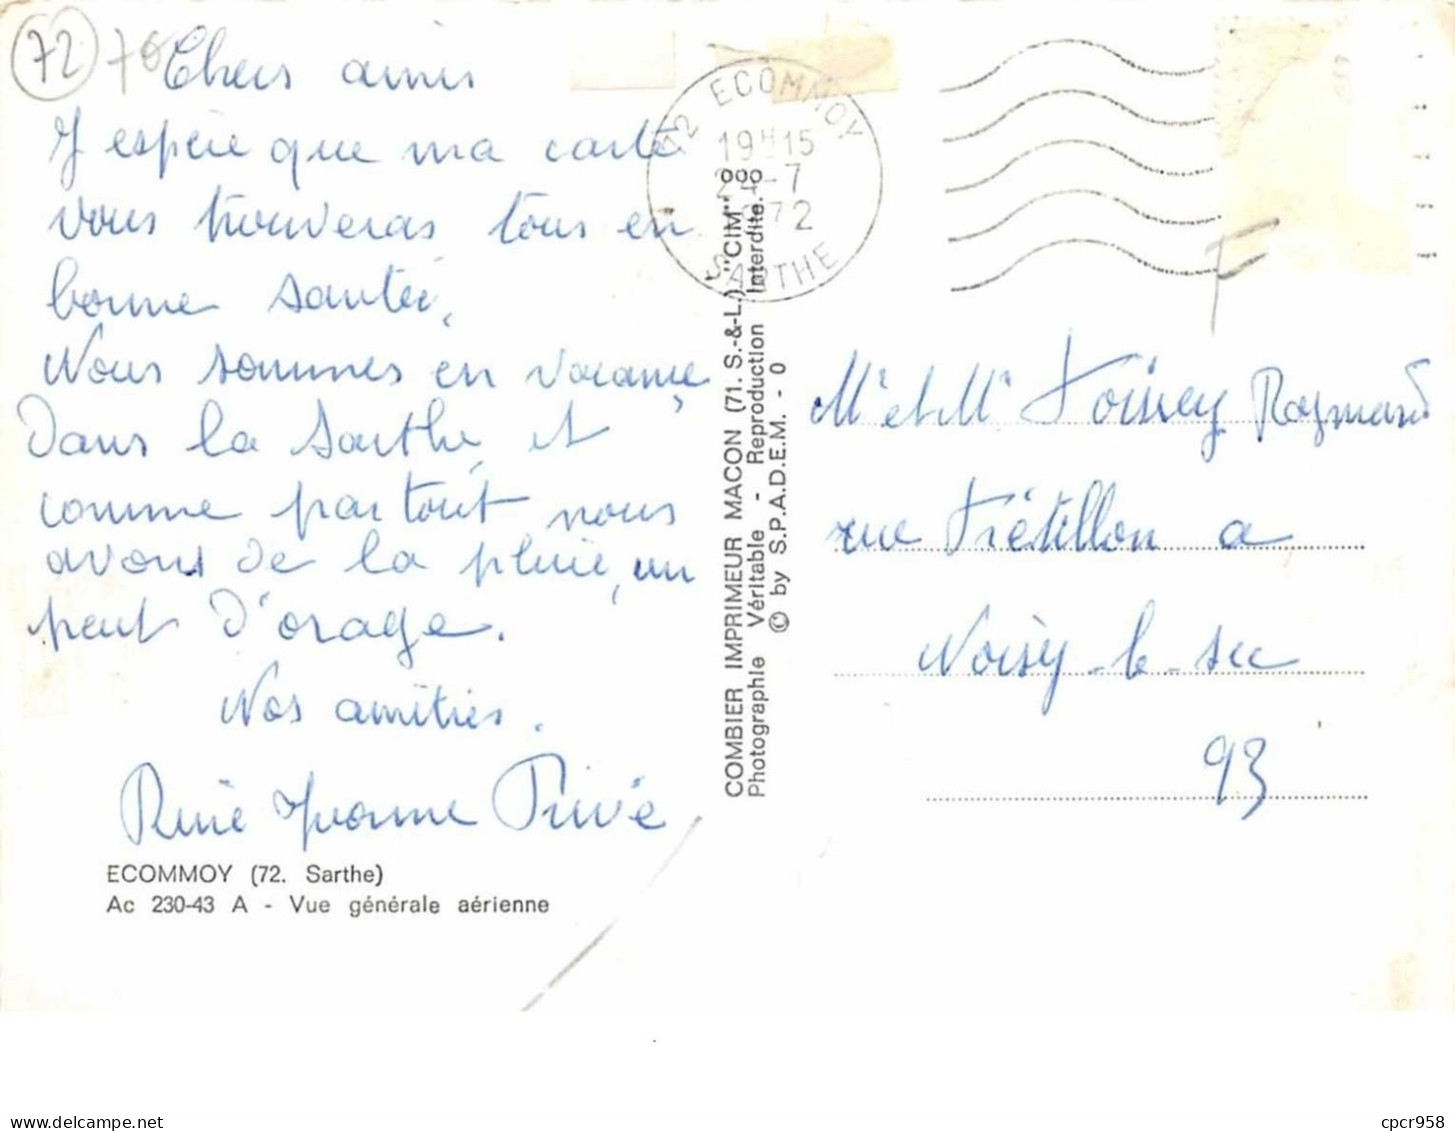 72
Chers amis
J espère que ma carte
vous trouveras tous en
bonne santée,
Nous sommes en vacance
Dans la Sarthe, et
comme partout nous
avons de la pluie, un
peut D'orage.
Nos amitiés.
René Yvonne Privé
ECOMMOY (72. Sarthe)
Ac 230-43 A - Vue générale aérienne
COMBIER IMPRIMEUR MACON (71. S.-&-L.) "CIM"
Photographie Véritable - Reproduction Interdite.
© by S.P.A.D.E.M. - 0
72 ECOMMOY
19H15
24-7
1972
SARTHE
Mr et Me Raymond
rue Trétillon a
Noisy-le-sec
93
delcampe.net
cpcr958